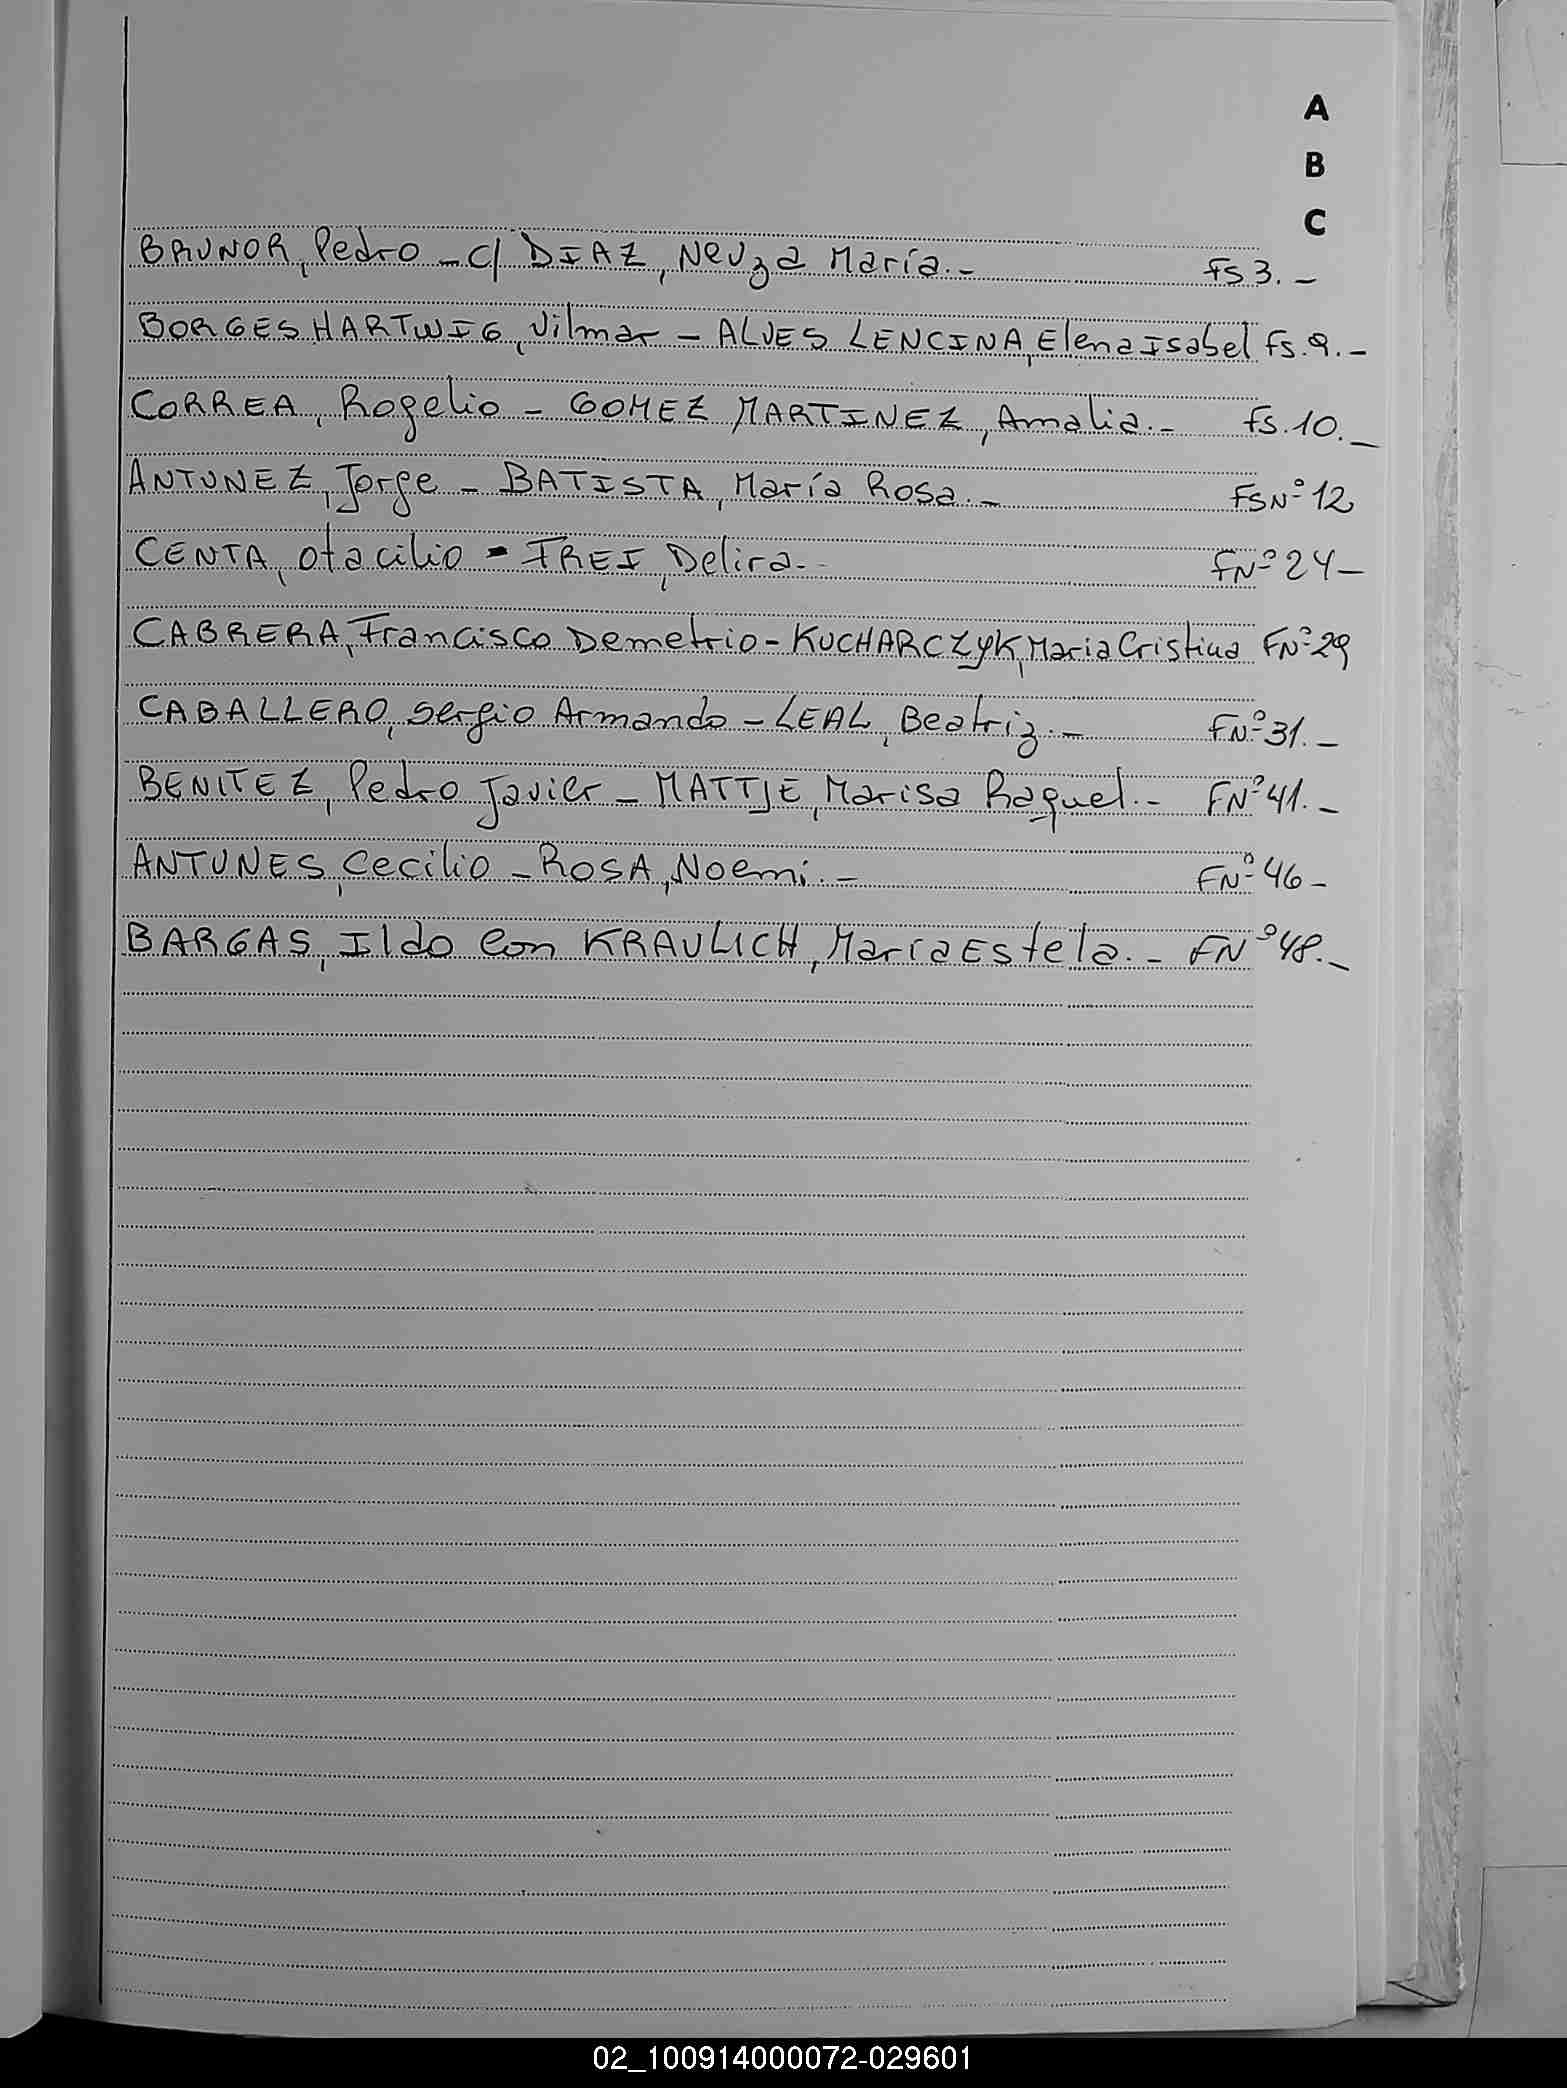 A
B
C
BRUNOR, Pedro - c/ DIAZ, Neuza María.- Fs 3.-
BORGES HARTWIG, Vilmar - ALVES LENCINA, Elena Isabel Fs. 9.-
CORREA, Rogelio - GOMEZ MARTINEZ, Amalia.- Fs. 10.-
ANTUNEZ, Jorge - BATISTA, María Rosa.- FSNº 12
CENTA, Otacilio - FREI, Delira.- FNº 24-
CABRERA, Francisco Demetrio - KUCHARCZYK, Maria Cristina FNº 29
CABALLERO, Sergio Armando - LEAL, Beatriz.- FNº 31.-
BENITEZ, Pedro Javier - MATTJE, Marisa Raquel.- FNº 41.-
ANTUNES, Cecilio - ROSA, Noemi.- FNº 46-
BARGAS, Ildo con KRAULICH, María Estela.- FNº 48.-
02_100914000072-029601